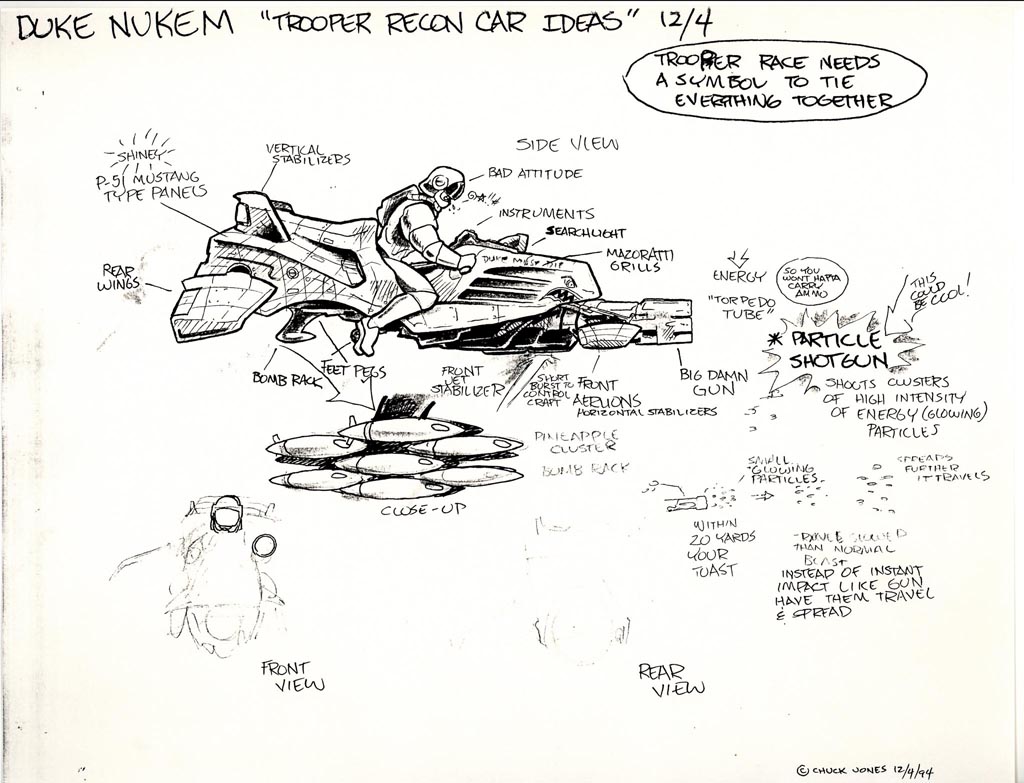 DUKE NUKEM "TROOPER RECON CAR IDEAS" 12/4
TROOPER RACE NEEDS
A SYMBOL TO TIE
EVERYTHING TOGETHER
SHINEY
P-51 MUSTANG
TYPE PANELS
VERTICAL
STABILIZERS
SIDE VIEW
BAD ATTITUDE
INSTRUMENTS
SEARCHLIGHT
MAZORATTI
GRILLS
REAR
WINGS
DUKE MUST DIE
ENERGY
"TORPEDO
TUBE"
SO YOU
WONT HAFTA
CARRY
AMMO
THIS
COULD
BE COOL!
* PARTICLE
SHOTGUN
SHOOTS CLUSTERS
OF HIGH INTENSITY
OF ENERGY (GLOWING)
PARTICLES
BOMB RACK
FEET PEGS
FRONT
JET
STABILIZER
SHORT
BURST TO
CONTROL
CRAFT
FRONT
AERLIONS
HORIZONTAL STABILIZERS
BIG DAMN
GUN
PINEAPPLE
CLUSTER
BOMB RACK
CLOSE-UP
SMALL
GLOWING
PARTICLES
SPREADS
FURTHER
IT TRAVELS
WITHIN
20 YARDS
YOUR
TOAST
THAN NORMAL
BLAST
INSTEAD OF INSTANT
IMPACT LIKE GUN
HAVE THEM TRAVEL
& SPREAD
FRONT
VIEW
REAR
VIEW
© CHUCK JONES 12/4/94